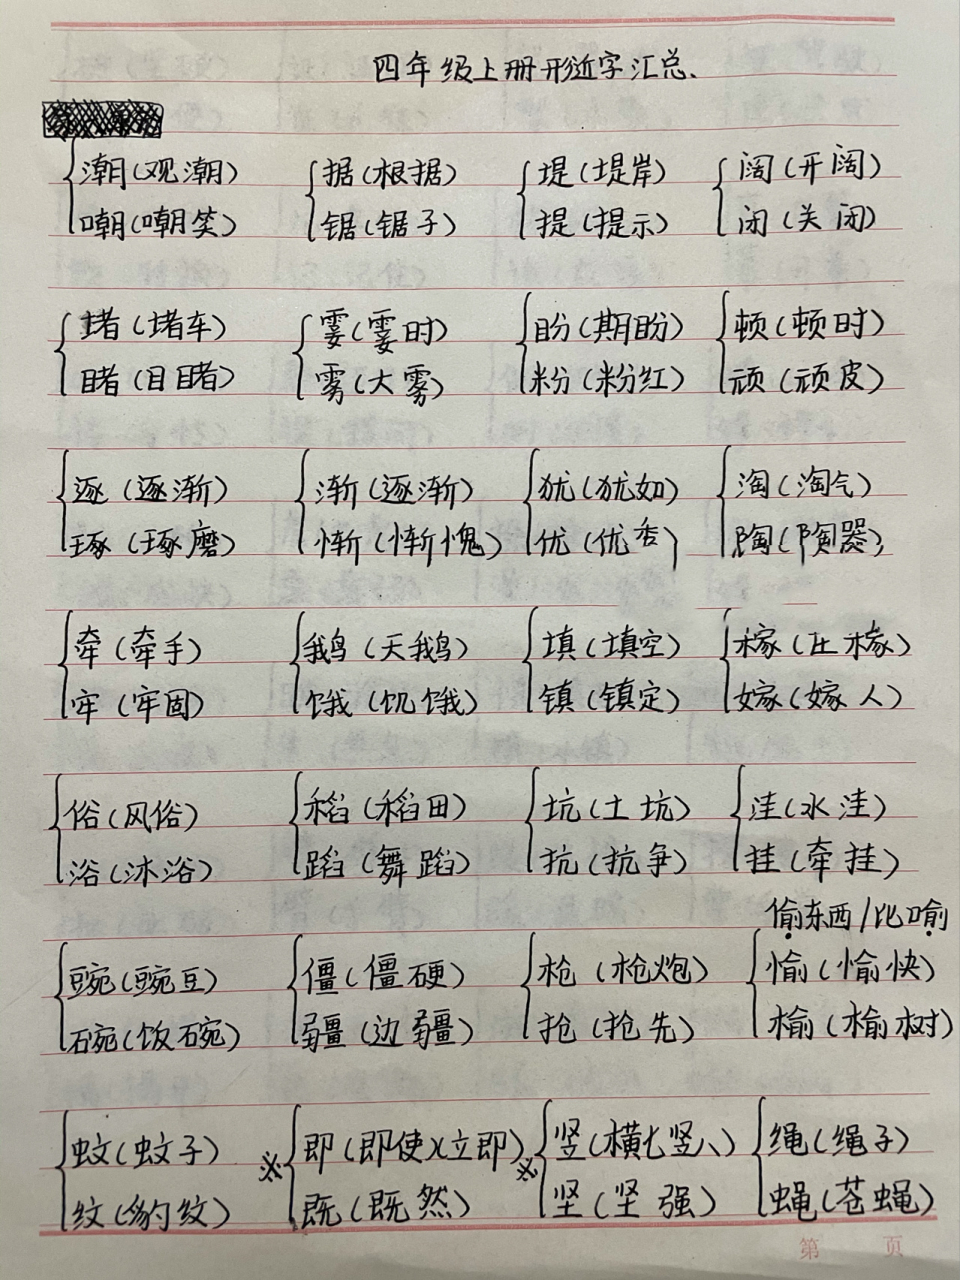 四年级上册形近字汇总、
潮(观潮) 据(根据) 堤(堤岸) 阔(开阔)
嘲(嘲笑) 锯(锯子) 提(提示) 闭(关闭)
堵(堵车) 霎(霎时) 盼(期盼) 顿(顿时)
睹(目睹) 雾(大雾) 粉(粉红) 顽(顽皮)
逐(逐渐) 渐(逐渐) 犹(犹如) 淘(淘气)
琢(琢磨) 惭(惭愧) 优(优秀) 陶(陶器)
牵(牵手) 鹅(天鹅) 填(填空) 稼(庄稼)
牢(牢固) 饿(饥饿) 镇(镇定) 嫁(嫁人)
俗(风俗) 稻(稻田) 坑(土坑) 洼(水洼)
浴(沐浴) 蹈(舞蹈) 抗(抗争) 挂(牵挂)
偷东西/比喻
豌(豌豆) 僵(僵硬) 枪(枪炮) 愉(愉快)
碗(饭碗) 疆(边疆) 抢(抢先) 榆(榆树)
蚊(蚊子) ※即(即使)(立即) ※竖(横七竖八) 绳(绳子)
纹(豹纹) 既(既然) 坚(坚强) 蝇(苍蝇)
第 页